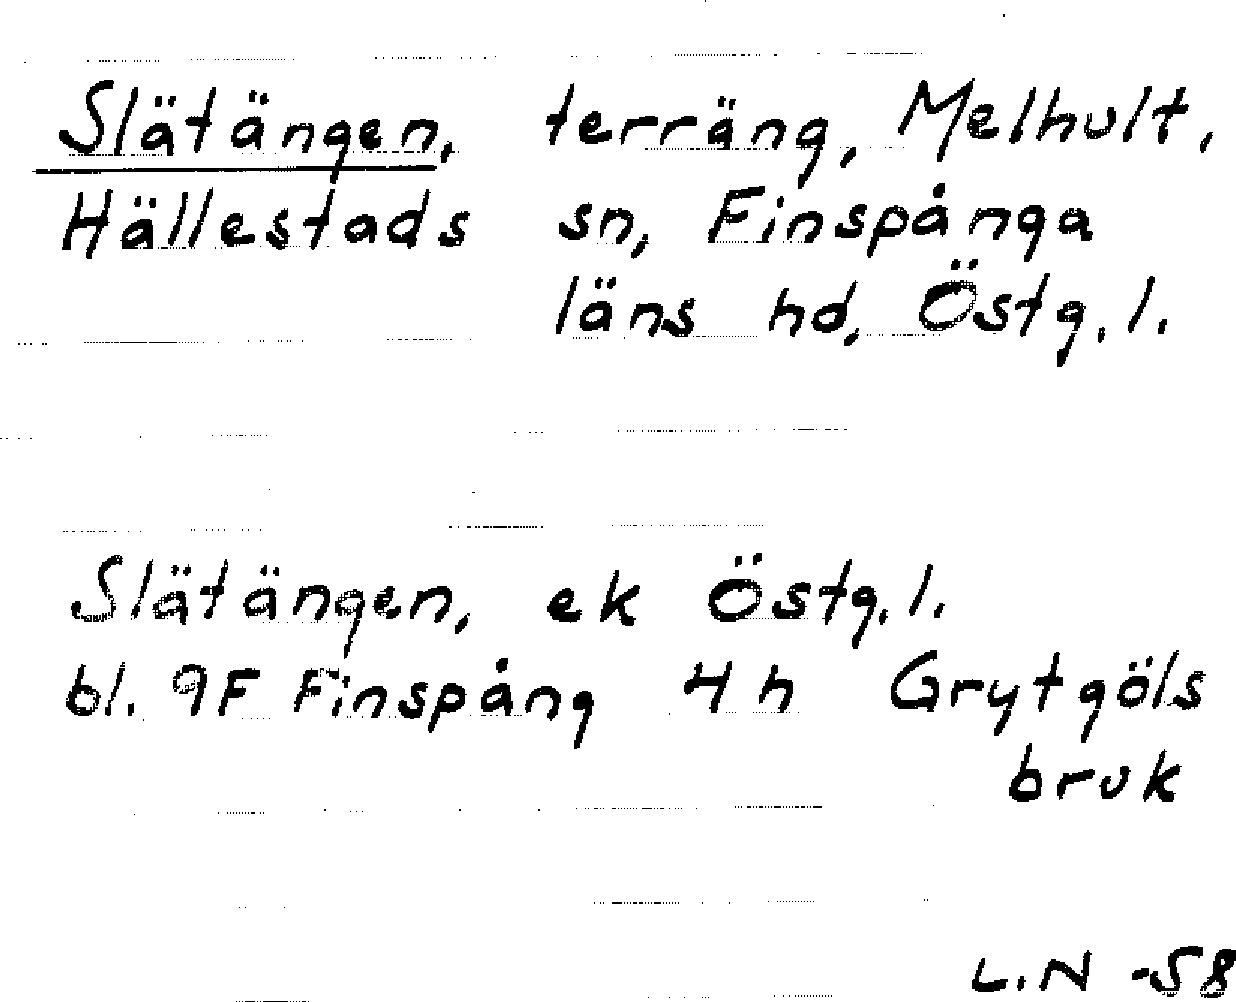 Slätängen, terräng, Melhult,
Hällestads sn, Finspånga
läns hd, Östg. l.
Slätängen, ek Östg. l.
bl. 9F Finspång 4 h Grytgöls
bruk
L.N -58